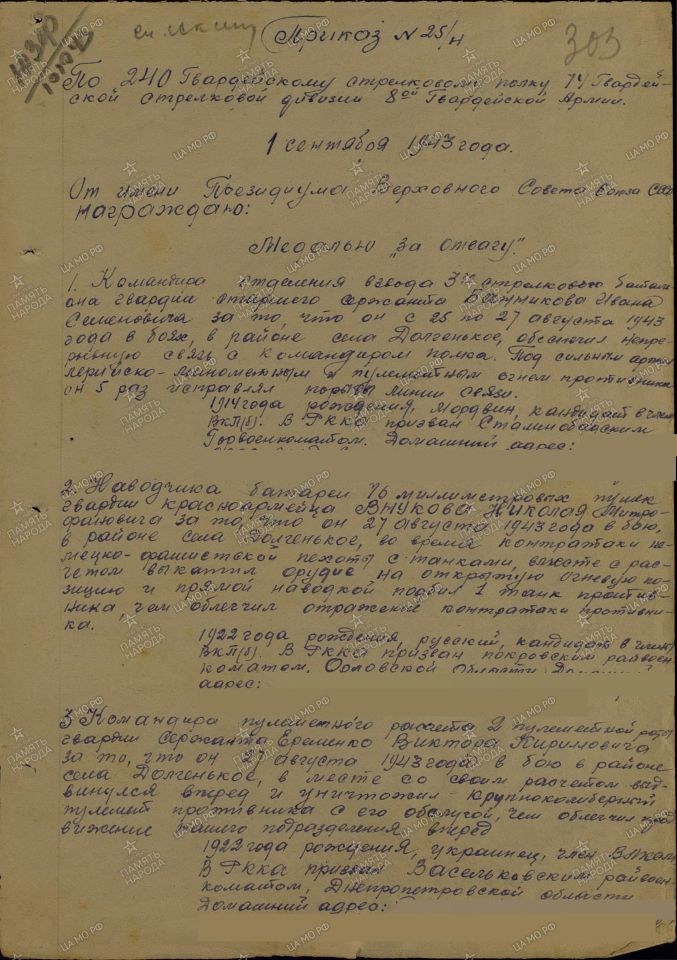 Приказ N 25/н
303
По 240 Гвардейскому стрелковому полку 74 Гвардей-
ской стрелковой дивизии 8ой Гвардейской Армии.
1 сентября 1943 года.
От имени Президиума Верховного Совета Союза ССР
награждаю:
Медалью „За отвагу".
1. Командира отделения взвода 3го стрелкового баталь-
она гвардии старшего сержанта Ивана
Семеновича за то, что он с 25 по 27 августа 1943
года в боях, в районе села Долгенькое, обеспечил непре-
рывную связь с командиром полка. Под сильным артил
лерийско-минометным и пулеметным огнем противника
он 5 раз исправлял порывы линии связи.
1914 года рождения, мордвин, кандидат в члены
ВКП(б). В РККА призван Сталинобадским
Горвоенкоматом. Домашний адрес:
2. Наводчика батареи 76 миллиметровых пушек
гвардии красноармейца Внукова Николая Митро-
фановича за то, что он 27 августа 1943 года в бою,
в районе села Долгенькое, во время контратаки не-
мецко-фашистской пехоты с танками, вместе с рас-
четом выкатил орудие на открытую огневую по-
зицию и прямой наводкой подбил 1 танк против-
ника, чем облегчил отражение контратаки противни-
ка.
1922 года рождения, русский, кандидат в члены
ВКП(б). В РККА призван Покровским райвоен-
коматом, Орловской области Домашний
адрес:
3 Командира пулеметного расчета 2 пулеметной роты
гвардии сержанта Еременко Виктора
за то, что он 27 августа 1943 года в бою в районе
села Долгенькое, в месте со своим расчетом выд-
винулся вперед и уничтожил крупнокалиберный
пулемет противника с его обслугой, чем облегчил прод
вижение нашего подразделения вперед
1922 года рождения, украинец, член
В РККА призван Васильковским райвоен-
коматом, Днепропетровской области
Домашний адрес:
ПАМЯТЬ НАРОДА
ЦАМО.РФ